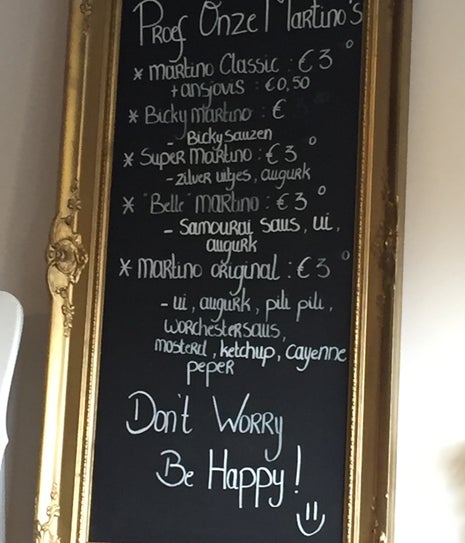 Proef Onze Martino's
* Martino Classic : € 3°
+ ansjovis : €0,50
* Bicky Martino : €
- Bicky sauzen
* Super Martino : € 3°
- zilver uitjes, augurk
* "Belle" Martino : € 3°
- Samourai saus, ui,
augurk
* Martino original : € 3°
- ui, augurk, pili pili,
worchestersaus,
mosterd, ketchup, cayenne
peper
Don't Worry
Be Happy!